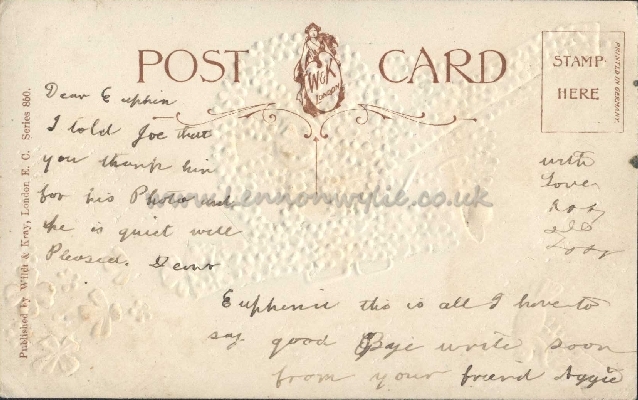 POST CARD
W&K
LONDON
STAMP
HERE
PRINTED IN GERMANY.
Published by Wildt & Kray, London, E. C. Series 860.
www.Lennonwylie.co.uk
Dear Euphin
I told Joe that
you thank him
for his Photo and
he is quiet well
Pleased. Dear
Euphenie this is all I have to
say good Bye write soon
from your friend Aggie
with
Love